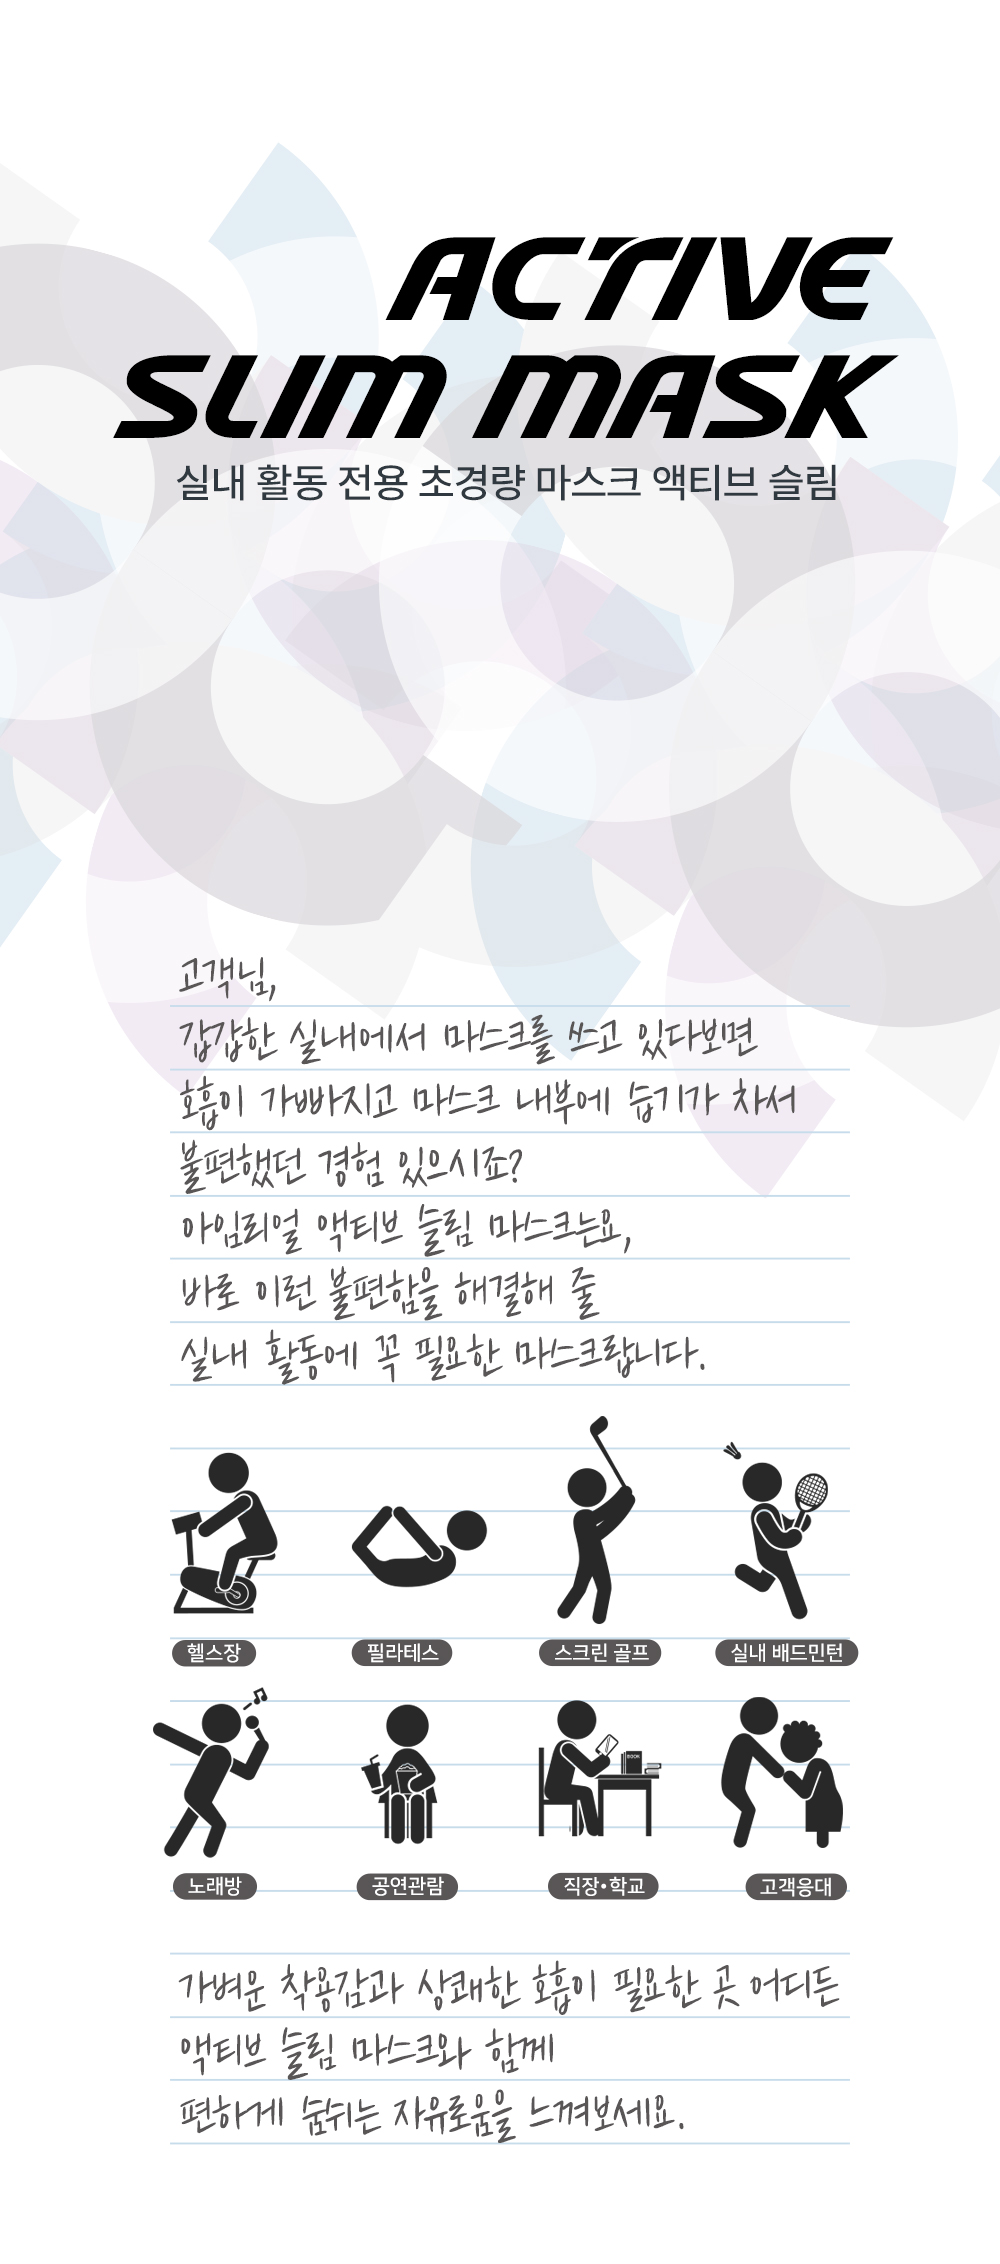 ACTIVE
SLIM MASK
실내 활동 전용 초경량 마스크 액티브 슬림
고객님,
갑갑한 실내에서 마스크를 쓰고 있다보면
호흡이 가빠지고 마스크 내부에 습기가 차서
불편했던 경험 있으시죠?
아임리얼 액티브 슬림 마스크는요,
바로 이런 불편함을 해결해 줄
실내 활동에 꼭 필요한 마스크랍니다.
헬스장 필라테스 스크린 골프 실내 배드민턴
BOOK
노래방 공연관람 직장•학교 고객응대
가벼운 착용감과 상쾌한 호흡이 필요한 곳 어디든
액티브 슬림 마스크와 함께
편하게 숨쉬는 자유로움을 느껴보세요.